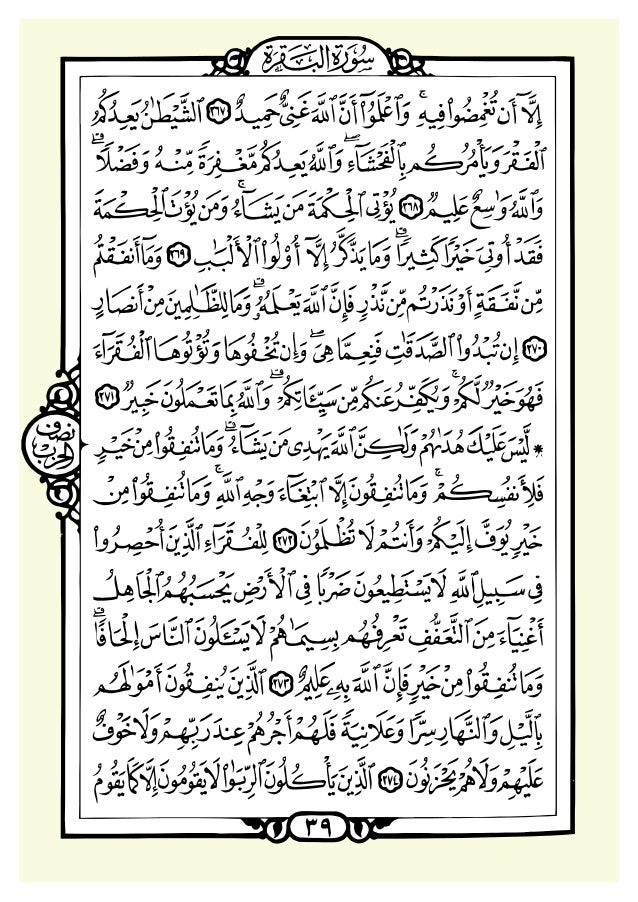 سُورَةُ البَقَرَة
إِلَّآ أَن تُغْمِضُوا۟ فِيهِ ۚ وَٱعْلَمُوٓا۟ أَنَّ ٱللَّهَ غَنِىٌّ حَمِيدٌ ٢٦٧ ٱلشَّيْطَـٰنُ يَعِدُكُمُ
ٱلْفَقْرَ وَيَأْمُرُكُم بِٱلْفَحْشَآءِ ۖ وَٱللَّهُ يَعِدُكُم مَّغْفِرَةً مِّنْهُ وَفَضْلًا ۗ
وَٱللَّهُ وَٰسِعٌ عَلِيمٌ ٢٦٨ يُؤْتِى ٱلْحِكْمَةَ مَن يَشَآءُ ۚ وَمَن يُؤْتَ ٱلْحِكْمَةَ
فَقَدْ أُوتِىَ خَيْرًا كَثِيرًا ۗ وَمَا يَذَّكَّرُ إِلَّآ أُو۟لُوا۟ ٱلْأَلْبَـٰبِ ٢٦٩ وَمَآ أَنفَقْتُم
مِّن نَّفَقَةٍ أَوْ نَذَرْتُم مِّن نَّذْرٍ فَإِنَّ ٱللَّهَ يَعْلَمُهُۥ ۗ وَمَا لِلظَّـٰلِمِينَ مِنْ أَنصَارٍ
٢٧٠ إِن تُبْدُوا۟ ٱلصَّدَقَـٰتِ فَنِعِمَّا هِىَ ۖ وَإِن تُخْفُوهَا وَتُؤْتُوهَا ٱلْفُقَرَآءَ
فَهُوَ خَيْرٌ لَّكُمْ ۚ وَيُكَفِّرُ عَنكُم مِّن سَيِّـَٔاتِكُمْ ۗ وَٱللَّهُ بِمَا تَعْمَلُونَ خَبِيرٌ ٢٧١
* لَّيْسَ عَلَيْكَ هُدَىٰهُمْ وَلَـٰكِنَّ ٱللَّهَ يَهْدِى مَن يَشَآءُ ۗ وَمَا تُنفِقُوا۟ مِنْ خَيْرٍ
فَلِأَنفُسِكُمْ ۚ وَمَا تُنفِقُونَ إِلَّا ٱبْتِغَآءَ وَجْهِ ٱللَّهِ ۚ وَمَا تُنفِقُوا۟ مِنْ
خَيْرٍ يُوَفَّ إِلَيْكُمْ وَأَنتُمْ لَا تُظْلَمُونَ ٢٧٢ لِلْفُقَرَآءِ ٱلَّذِينَ أُحْصِرُوا۟
فِى سَبِيلِ ٱللَّهِ لَا يَسْتَطِيعُونَ ضَرْبًا فِى ٱلْأَرْضِ يَحْسَبُهُمُ ٱلْجَاهِلُ
أَغْنِيَآءَ مِنَ ٱلتَّعَفُّفِ تَعْرِفُهُم بِسِيمَـٰهُمْ لَا يَسْـَٔلُونَ ٱلنَّاسَ إِلْحَافًا ۗ
وَمَا تُنفِقُوا۟ مِنْ خَيْرٍ فَإِنَّ ٱللَّهَ بِهِۦ عَلِيمٌ ٢٧٣ ٱلَّذِينَ يُنفِقُونَ أَمْوَٰلَهُم
بِٱلَّيْلِ وَٱلنَّهَارِ سِرًّا وَعَلَانِيَةً فَلَهُمْ أَجْرُهُمْ عِندَ رَبِّهِمْ وَلَا خَوْفٌ
عَلَيْهِمْ وَلَا هُمْ يَحْزَنُونَ ٢٧٤ ٱلَّذِينَ يَأْكُلُونَ ٱلرِّبَوٰا۟ لَا يَقُومُونَ إِلَّا كَمَا يَقُومُ
نصف
الحزب
٣٩